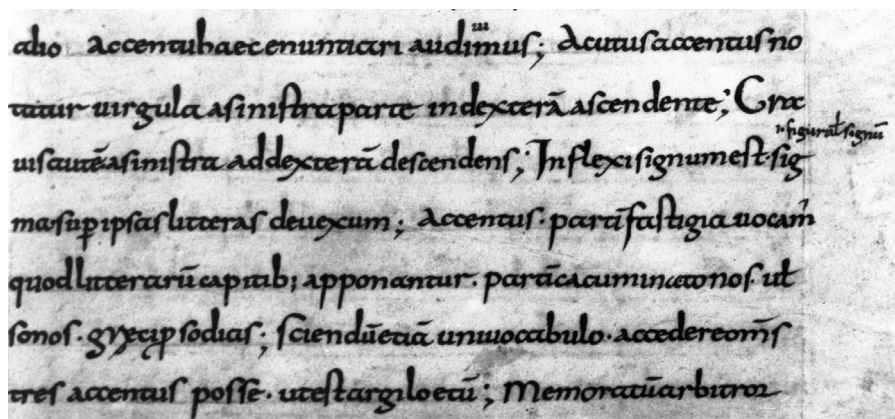 alio accentu haec enuntiari audimus; Acutus accentus no
tatur uirgula a sinistra parte in dexterā ascendente; Gra
uis autē a sinistra ad dexterā descendens; Inflexi signum est · sig
.i. figura ł signū
ma · sup ipsas litteras deuexum; Accentus · partī fastigia uocam
quod litterarū capitib; apponantur · partī cacumina tonos · uł
sonos · sodias; sciendū etiā uni uocabulo · accedere oms
tres accentus posse · ut est argiloetū; Memoratū arbitror